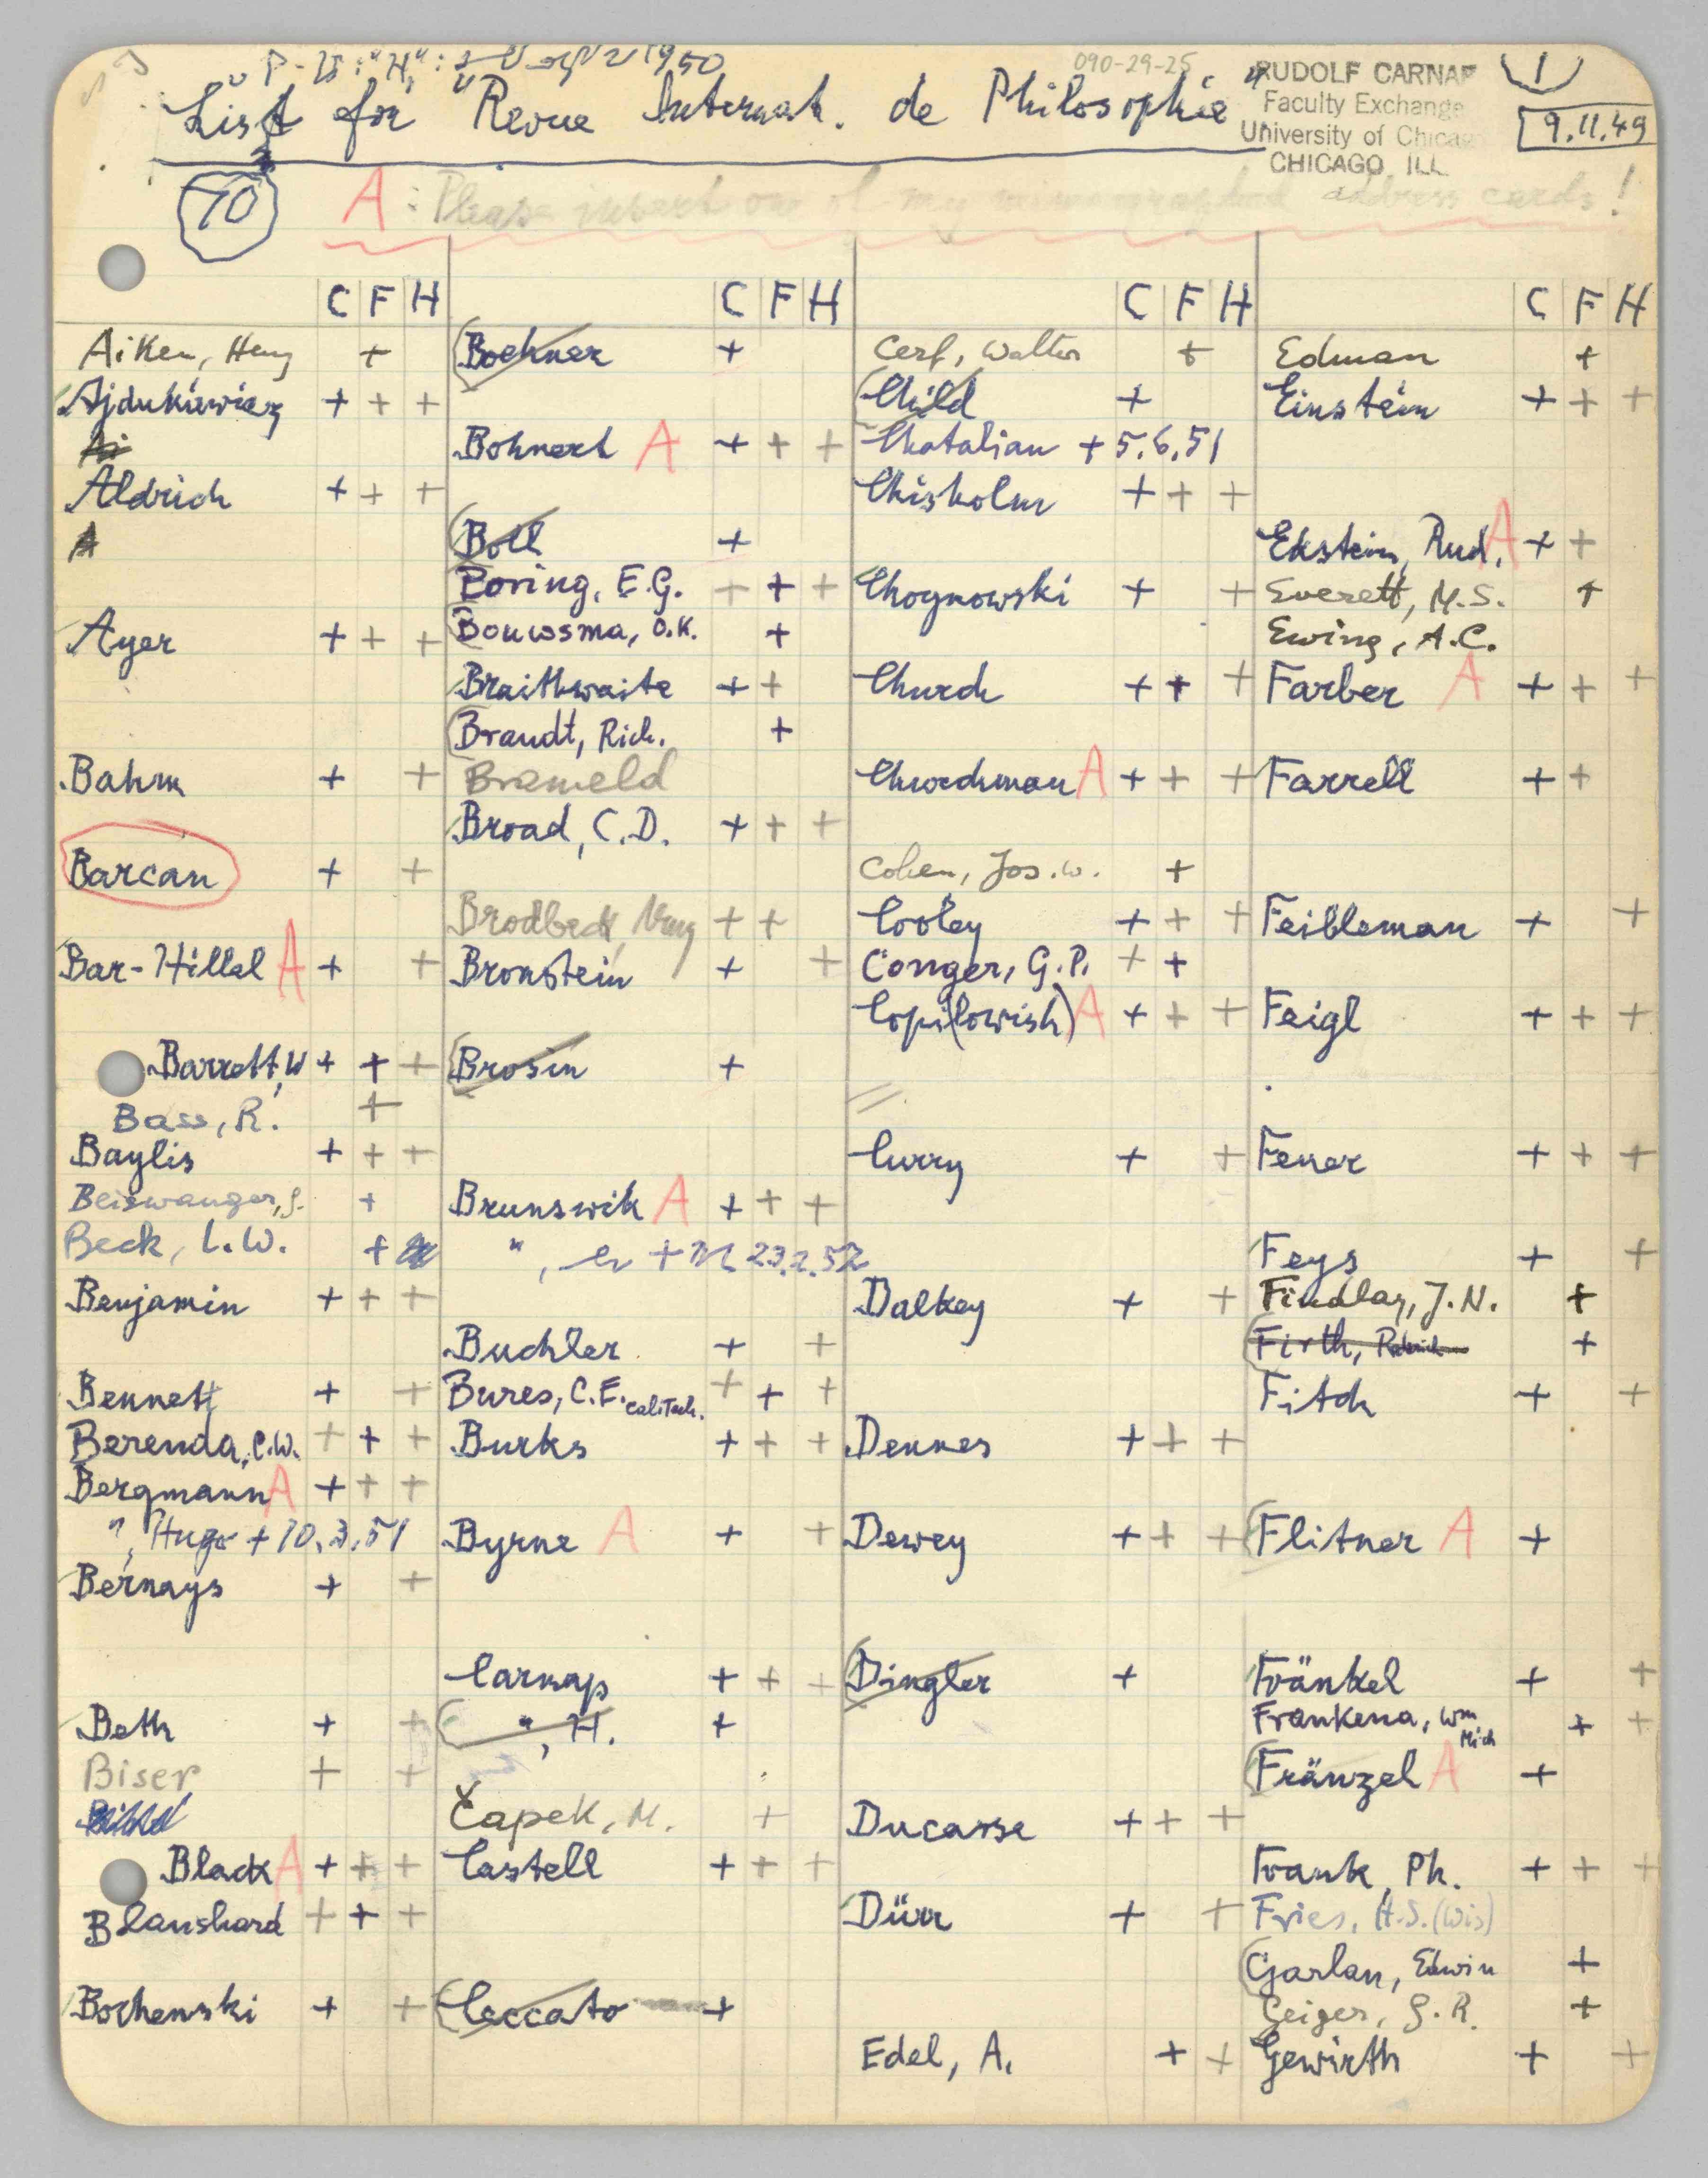 1950
090-29-25
RUDOLF CARNAP
Faculty Exchange
University of Chicag
CHICAGO, ILL
1
9.11.49
List for "Revue Internat. de Philosophie"
70
A : Please insert one of my mimeographed address cards!
C F H
Aiken, Henry +
Ajdukiewicz + + +
Aldrich + + +
Ayer + + +
Bahm + +
Barcan + +
Bar-Hillel A + +
Barrett, W + + +
Bass, R. +
Baylis + + +
Beiswanger, G. +
Beck, L.W. +
Benjamin + + +
Bennett + +
Berenda, C.W. + + +
Bergmann A + + +
", Hugo + 10.3.51
Bernays + +
Beth + +
Biser + +
Black A + + +
Blanshard + + +
Bochenski + +
C F H
Boehner +
Bohnert A + + +
Boll +
Boring, E.G. + + +
Bouwsma, O.K. +
Braithwaite + +
Brandt, Rich. +
Brameld
Broad, C.D. + + +
Brodbeck, May + +
Bronstein + +
Brosin +
Brunswik A + + +
", + 23.2.52
Buchler + +
Bures, C.E. CaliTech. + + +
Burks + + +
Byrne A + +
Carnap + + +
", H. +
Čapek, M. +
Castell + + +
Ceccato +
C F H
Cerf, Walter +
Child +
Chatalian + 5.6.51
Chisholm + + +
Choynowski + +
Church + + +
Churchman A + + +
Cohen, Jos. W. +
Cooley + + +
Conger, G.P. + +
Copi(lowish) A + + +
Curry + +
Dalkey + +
Dennes + + +
Dewey + + +
Dingler +
Ducasse + + +
Dürr + +
Edel, A. + +
C F H
Edman +
Einstein + + +
Ekstein, Rud. A + +
Everett, M.S. +
Ewing, A.C.
Farber A + + +
Farrell + +
Feibleman + +
Feigl + + +
Feuer + + +
Feys + +
Findlay, J.N. +
Firth, Roderick +
Fitch + +
Flitner A +
Fränkel + +
Frankena, Wm Mich + +
Fränzel A +
Frank, Ph. + + +
Fries, H.S. (Wis)
Garlan, Edwin +
Geiger, G.R. +
Gewirth + +